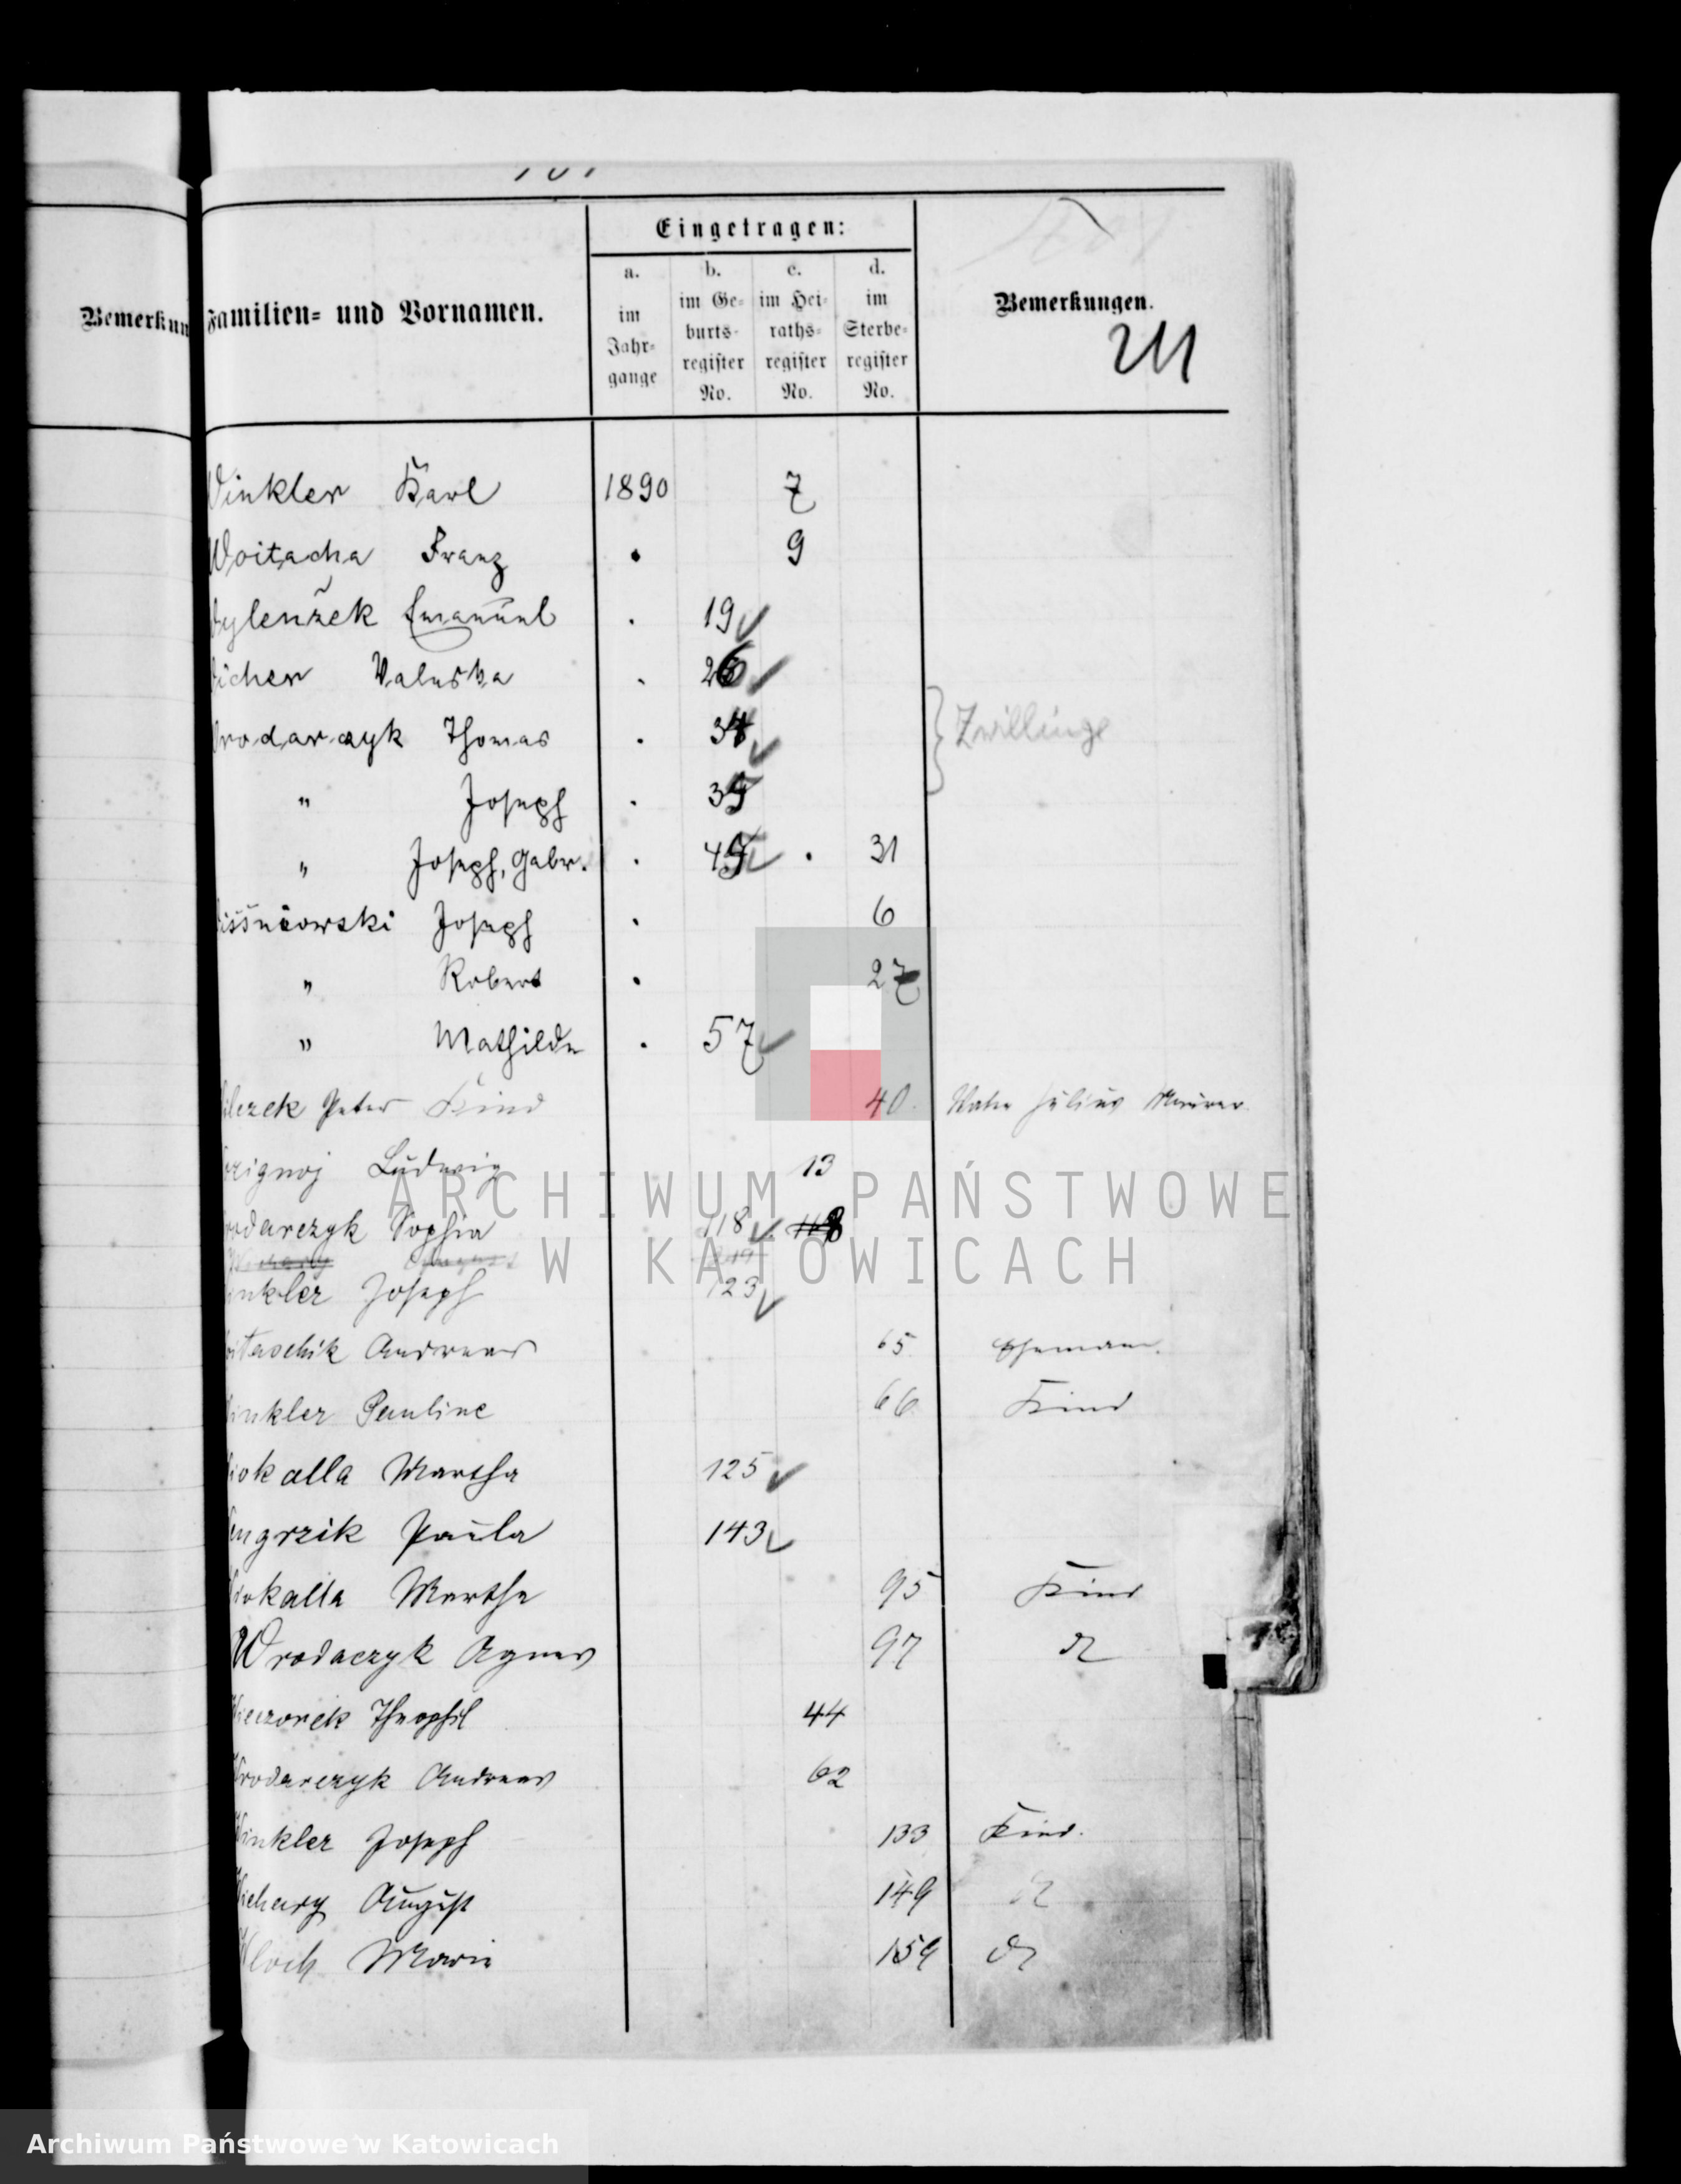 Bemerkun
Familien- und Vornamen.
Eingetragen:
a. im Jahr-gange
b. im Ge-burts-register No.
c. im Hei-raths-register No.
d. im Sterbe-register No.
Bemerkungen.
inkler Karl 1890 7
Woitacha Franz . 9
ylenžek Emanuel . 19
icher Valeska . 26
rodarczyk Thomas . 34 Zwillinge
" Joseph . 35
" Joseph, Gabr. . 45 . 31
iśśniowski Joseph . 6
" Robert . 27
" Mathilde . 57
ilczek Peter Kind 40. Julius Maurer
rzignoj Ludwig 13
odarczyk Sophia 118
inkler Joseph 123
oitaschik Andreas 65 Ehemann.
inkler Pauline 66 Kind
iokalla Martha 125
engrzik Paula 143
iokalla Martha 95 Kind
Wrodaczyk Agnes 97
ieczorek Theophil 44
rodarczyk Andreas 62
inkler Joseph 133 Kind.
ichary August 149
Wloch Marie 159
ARCHIWUM PAŃSTWOWE
W KATOWICACH
Archiwum Państwowe w Katowicach